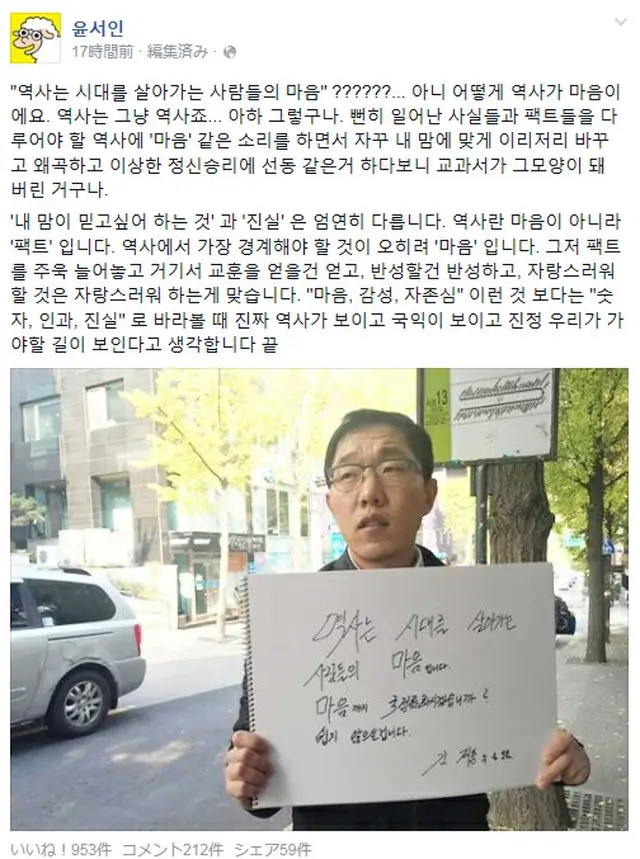 윤서인
17時間前 · 編集済み ·
"역사는 시대를 살아가는 사람들의 마음" ??????... 아니 어떻게 역사가 마음이
에요. 역사는 그냥 역사죠... 아하 그렇구나. 뻔히 일어난 사실들과 팩트들을 다
루어야 할 역사에 '마음' 같은 소리를 하면서 자꾸 내 맘에 맞게 이리저리 바꾸
고 왜곡하고 이상한 정신승리에 선동 같은거 하다보니 교과서가 그모양이 돼
버린 거구나.
'내 맘이 믿고싶어 하는 것' 과 '진실' 은 엄연히 다릅니다. 역사란 마음이 아니라
'팩트' 입니다. 역사에서 가장 경계해야 할 것이 오히려 '마음' 입니다. 그저 팩트
를 주욱 늘어놓고 거기서 교훈을 얻을건 얻고, 반성할건 반성하고, 자랑스러워
할 것은 자랑스러워 하는게 맞습니다. "마음, 감성, 자존심" 이런 것 보다는 "숫
자, 인과, 진실" 로 바라볼 때 진짜 역사가 보이고 국익이 보이고 진정 우리가 가
야할 길이 보인다고 생각합니다 끝
13
역사는 시대를 살아가는
사람들의 마음입니다.
마음까지
쉽지 않으실겁니다.
いいね！953件 コメント212件 シェア59件